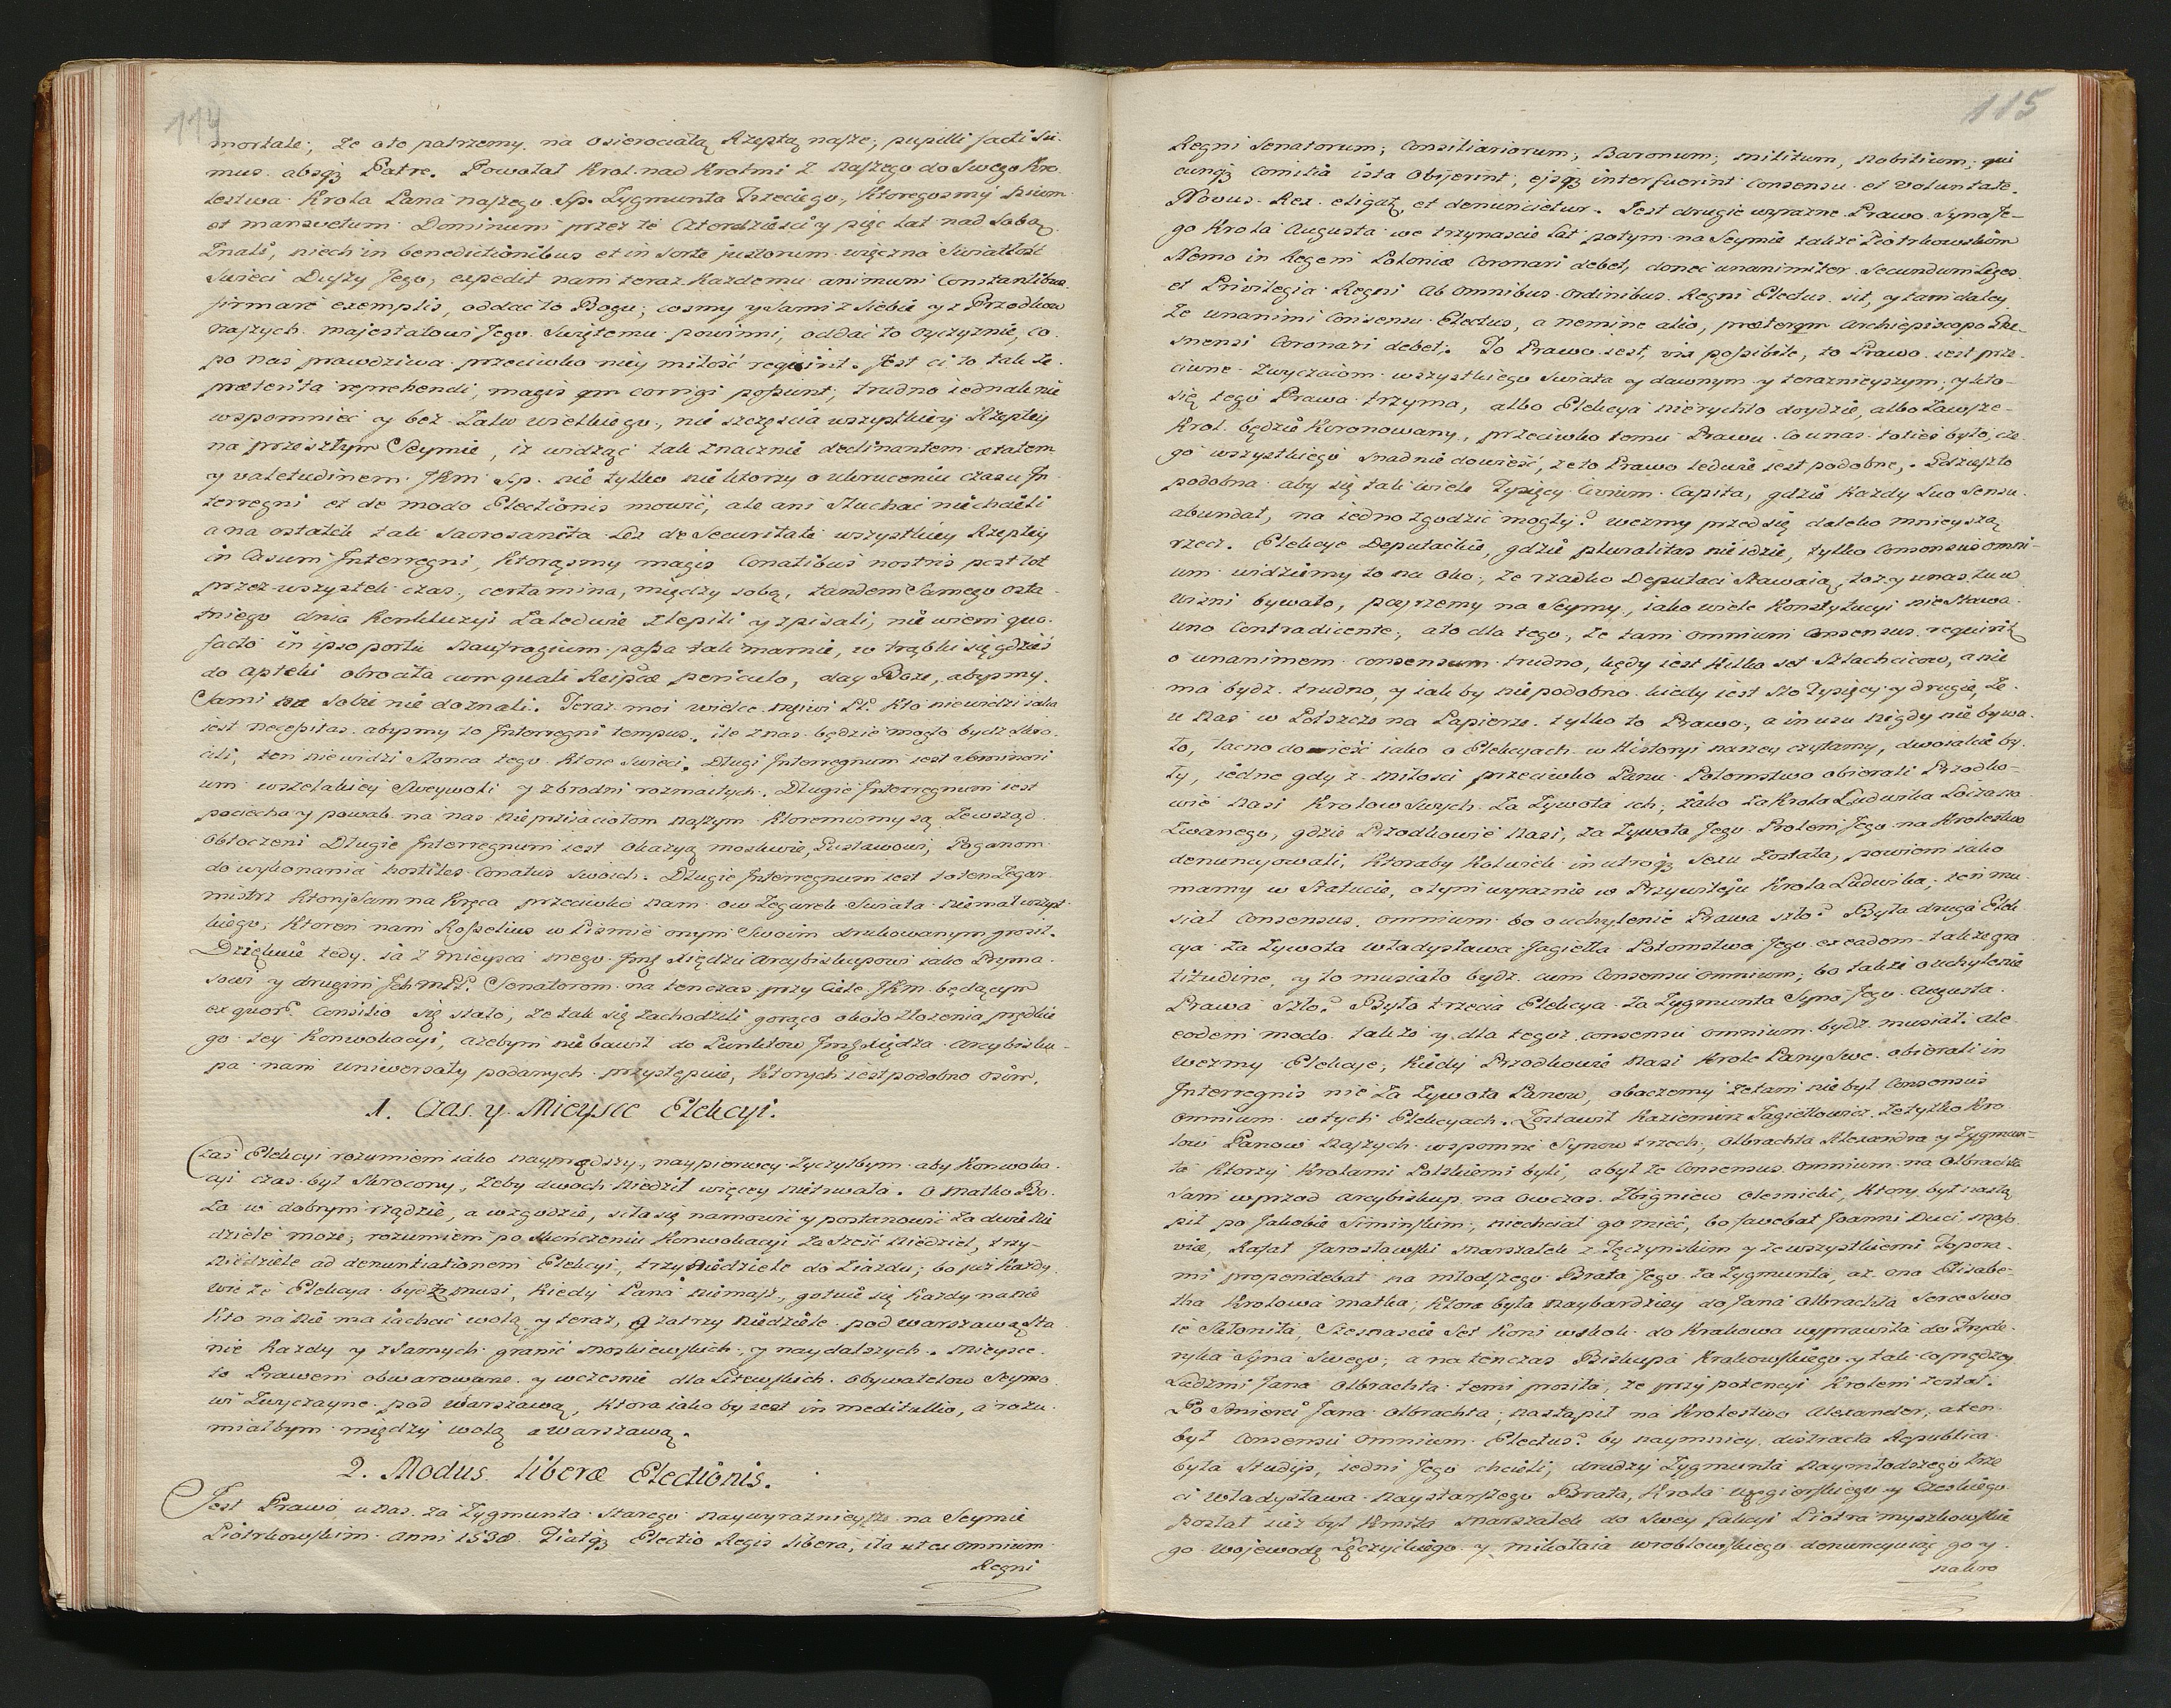 114
mortale; że oto patrzemy na osierociałą Rzeptą naszę; pupilli facti su-
mus absqz Patre. Powołał Krol nad Krolmi z naszego do Swego Kro-
lestwa Krola Pana naszego Sp. Zygmunta Trzeciego, ktoregosmy pium
et mansvetum Dominum przez te Czterdzieści y pięc lat nad Sobą
Znali, niech in benedictionibus et in sorte justorum więczna Swiatłość
Swieci Duszy Jego, expedit nam teraz Każdemu animum Constantibus
firmare exemplis, oddać to Bogu; cosmy y Sami z Siebie y z Przodkow
naszych majestatowi Jego Swiętemu powinni, oddać to oyczyznie, co
po nas prawdziwa przeciwko niey miłość requirit. Jest ci to tak że
præterita reprehendi, magis qm corrigi possunt; trudno iednak nie
wspomnieć y bez Zalu wielkiego, nie szczęścia wszystkiey Rzeptey
na przeszłym Seymie, iż widząc tak znacznie declinantem ætatem
y valetudinem JKm sp. nie tylko niektorzy o ukruceniu czasu In-
terregni et de modo Electionis mowić, ale ani Słuchać niechcieli
a na ostatek tak Sacrosancta Lex de Securitate wszystkiey Rzeptey
in Casum Interregni, ktorąsmy magis Conatibus nostris post tot
przez wszystek czas, certamina, między sobą, tandem Samego osta-
tniego dnia Konkluzyi Zaledwie Zlepili y spisali, nie wiem quo
facto in ipso portu naufragium passa tak marnie, w trąbki się gdzieś
do apteki obrociła cum quali Reipcæ periculo, day Boze, abysmy
Sami na sobie nie doznali. Teraz moi wielce mściwi PP. Kto niewidzi iaka
iest necessitas abysmy to Interregni tempus, ile z nas będzie mogło bydz skro-
cili, ten niewidzi Słonca tego ktore Swieci. Długi Interregnum iest Seminari
um wszelakiey Sweywoli y zbrodni rozmaitych. Długie Interregnum iest
pociecha y powab na nas nieprzyiaciołom naszym ktoremismy są Zewsząd
obtoczeni Długie Interregnum iest okazyą moskwie, Gustawowi, Poganom
do wykonania hostiles Conatus swoich. Długie Interregnum iest to ten Zegar-
mistrz ktory Sam na Kręca przeciwko nam ow Zegarek Swiata niemal wszyst-
kiego, ktorem nam Rosselius w Pismie onym Swoim drukowanym grosił.
Dziękuię tedy ia z mieysca mego Jmę Xiędzu Arcybiskupowi iako Pryma-
sowi y drugim Ich mPP. Senatorom na tenczas przy Ciele JKm będącym
ex quor. Consilio się stało, ze tak się zachodzili gorąco około złozenia prędkie
go tey Konwokacyi, ażebym niebawił do Punktow Jmę Xiędza Arcybisku-
pa nam uniwersały podanych przystępuie, ktorych iest podobno osim.
1. Czas y Mieysce Elekcyi.
Czas Elekcyi rozumiem iako nayprędszy, naypierwey Zyczyłbym aby Konwoka-
cyi czas był skrocony, Zeby dwoch niedzil więcey nietrwała. O matko Bo-
ża w dobrym rządzie, a wzgodzie, siła się namowić y postanowić Za dwie nie
dziele może; rozumiem po skończeniu Konwokacyi Za Sześć niedziel, trzy-
niedziele ad denuntiationem Elekcyi, trzy niedziele do Ziazdu; bo już każdy
wie że Elekcya być musi, kiedy Pana niemasz, gotuie się każdy na nie
Kto na nie ma iachać wolą y teraz, a za trzy niedziele pod Warszawą sta
nie każdy y z samych granic moskiewskich, y naydalszych. Mieysce
to Prawem obwarowane y wczesnie dla Litewskich obywatelow Seymo
wi Zwyczayne pod Warszawą, ktora iako by iest in meditullio, a rozu-
miałbym między wolą a Warszawą.
2. Modus liberæ Electionis.
Jest Prawo u nas za Zygmunta Starego naywyraznieysze na Seymie
Piotrkowskim Anni 1538. Fiatqz Electio Regis libera, ita ut ex omnium
Regni
115
Regni Senatorum; Consiliariorum, Baronum; militum, nobilium; qui
cunqz Comitia ista Obijerint, ejsqz interfuerint consensu et voluntate.
Novus Rex eligat, et denuncietur. Jest drugie wyrazne Prawo Syna Je-
go Krola Augusta we trzynascie lat potym na Seymie także Piotrkowskim
Nemo in Regem Poloniæ Coronari debet, donec unanimiter Secundum Leges
et Privilegia Regni ab omnibus ordinibus Regni Electus sit, y tam daley
Ze unanimi Consensu Electus, a nemine alio, præterqm Archiepiscopo Gne-
snensi Coronari debet. To Prawo iest, vix possibile, to Prawo iest prze-
ciwne Zwyczaiom wszystkiego Swiata y dawnym y teraznieyszym, y kto
się tego Prawa trzyma, albo Elekcya nierychło doydzie, albo Zawsze
Krol będzie Koronowany, przeciwko temu Prawu. Co unas toties było, cze
go wszystkiego snadnie dowieść, że to Prawo ledwie iest podobne. Gdziesz to
podobna aby się tak wiele Tysięcy Civium Capita, gdzie każdy Suo Sensu
abundat, na iedno zgodzić mogły? wezmy przed się daleko mnieyszą
rzecz. Elekcye Deputackie, gdzie pluralitas nie idzie, tylko Consensus omni-
um widziemy to na oko, że rzadko Deputaci stawaią, toż y unas tu w
wiżni bywało, poyrzemy na Seymy, iako wiele Konstytucyi nie stawa
uno Contradicente, a to dla tego, że tam omnium Consensus requirit
o unanimem consensum trudno, kędy iest kilka set Szlachcicow, a nie
ma bydz trudno, y iak by niepodobno kiedy iest sto Tysięcy y drugie, Ze
u nas w Polszcze na Papierze tylko to Prawo, a in usu nigdy nie bywa-
ło, łacno dowieść iako o Elekcyach w Historyi naszey czytamy, dwoiakie by-
ły, iedne gdy z miłosci przeciwko Panu Potomstwo obierali Przodko-
wie nasi Krolow swych Za Zywota ich; iako Za Krola Ludwika Loizana
Zwanego, gdzie Przodkowie nasi, za Zywota Jego Prolem Jego na Krolestwo
denuncyowali, ktoraby kolwiek in utroqz Sexu Została, powiem iako
mamy w Statucie, o tym wyraznie w Przywileju Krola Ludwika; ten mu
siał Consensus omnium bo o uchylenie Prawa szło. Była druga Elek
cya Za Zywota Władysława Jagiełła Potomstwa Jego ex eadem także gra
titudine, y to musiało bydz cum Consensu omnium; bo także o uchylenie
Prawa szło. Była trzecia Elekcya Za Zygmunta Syna Jego Augusta
eodem modo także y dla tegoż consensu omnium bydz musiał: ale
wezmy Elekcye, kiedy Przodkowie nasi Krole Pany Swe obierali in
Interregnis nie Za Zywota Panow, obaczemy że tam nie był Consensus
omnium w tych Elekcyach. Zostawił Kazimierz Jagiełłowicz, ze tylko Kro
low Panow naszych wspomnie Synow trzech, Olbrachta Alexandra y Zygmun-
ta ktorzy Krolami Polskiemi byli, a był że Consensus omnium na Olbrachta
Sam wprzod Arcybiskup na owczas Zbigniew Olesnicki, ktory był nastą
pił po Jakobie Siminskim, niechciał go mieć, bo favebat Joanni Duci maso
viæ, Rafał Jarosławski Marszałek z Tęczynskim y ze wszystkiemi Topora-
mi propendebat na młodszego Brata Jego Za Zygmunta, aż ona Elisabe-
tha Krolowa matka; ktora była naybardziey do Jana Olbrachta Serce swo
ie skłoniła, Szesnascie set Koni w skok do Krakowa wyprawiła do Fryde-
ryka Syna Swego; a na tenczas Biskupa Krakowskiego y tak coprędzey
Ludzmi Jana Olbrachta temi prosiła, że przy potencyi Krolem został.
Po Smierci Jana Olbrachta, nastąpił na Krolestwo Alexander, a ten
był Consensu omnium Electus? by naymniey distracta Republica
była Studijs, iedni Jego chcieli, drudzy Zygmunta naymłodszego trze
ci Władysława naystarszego Brata, Krola węgierskiego y Czeskiego
posłał iuż był Kmita Marszałek do Swey fakcyi Piotra myszkowskie
go Wojewodę Łęczyckiego y mikołaia wroblowskiego denuncyuiąc go y
nakro